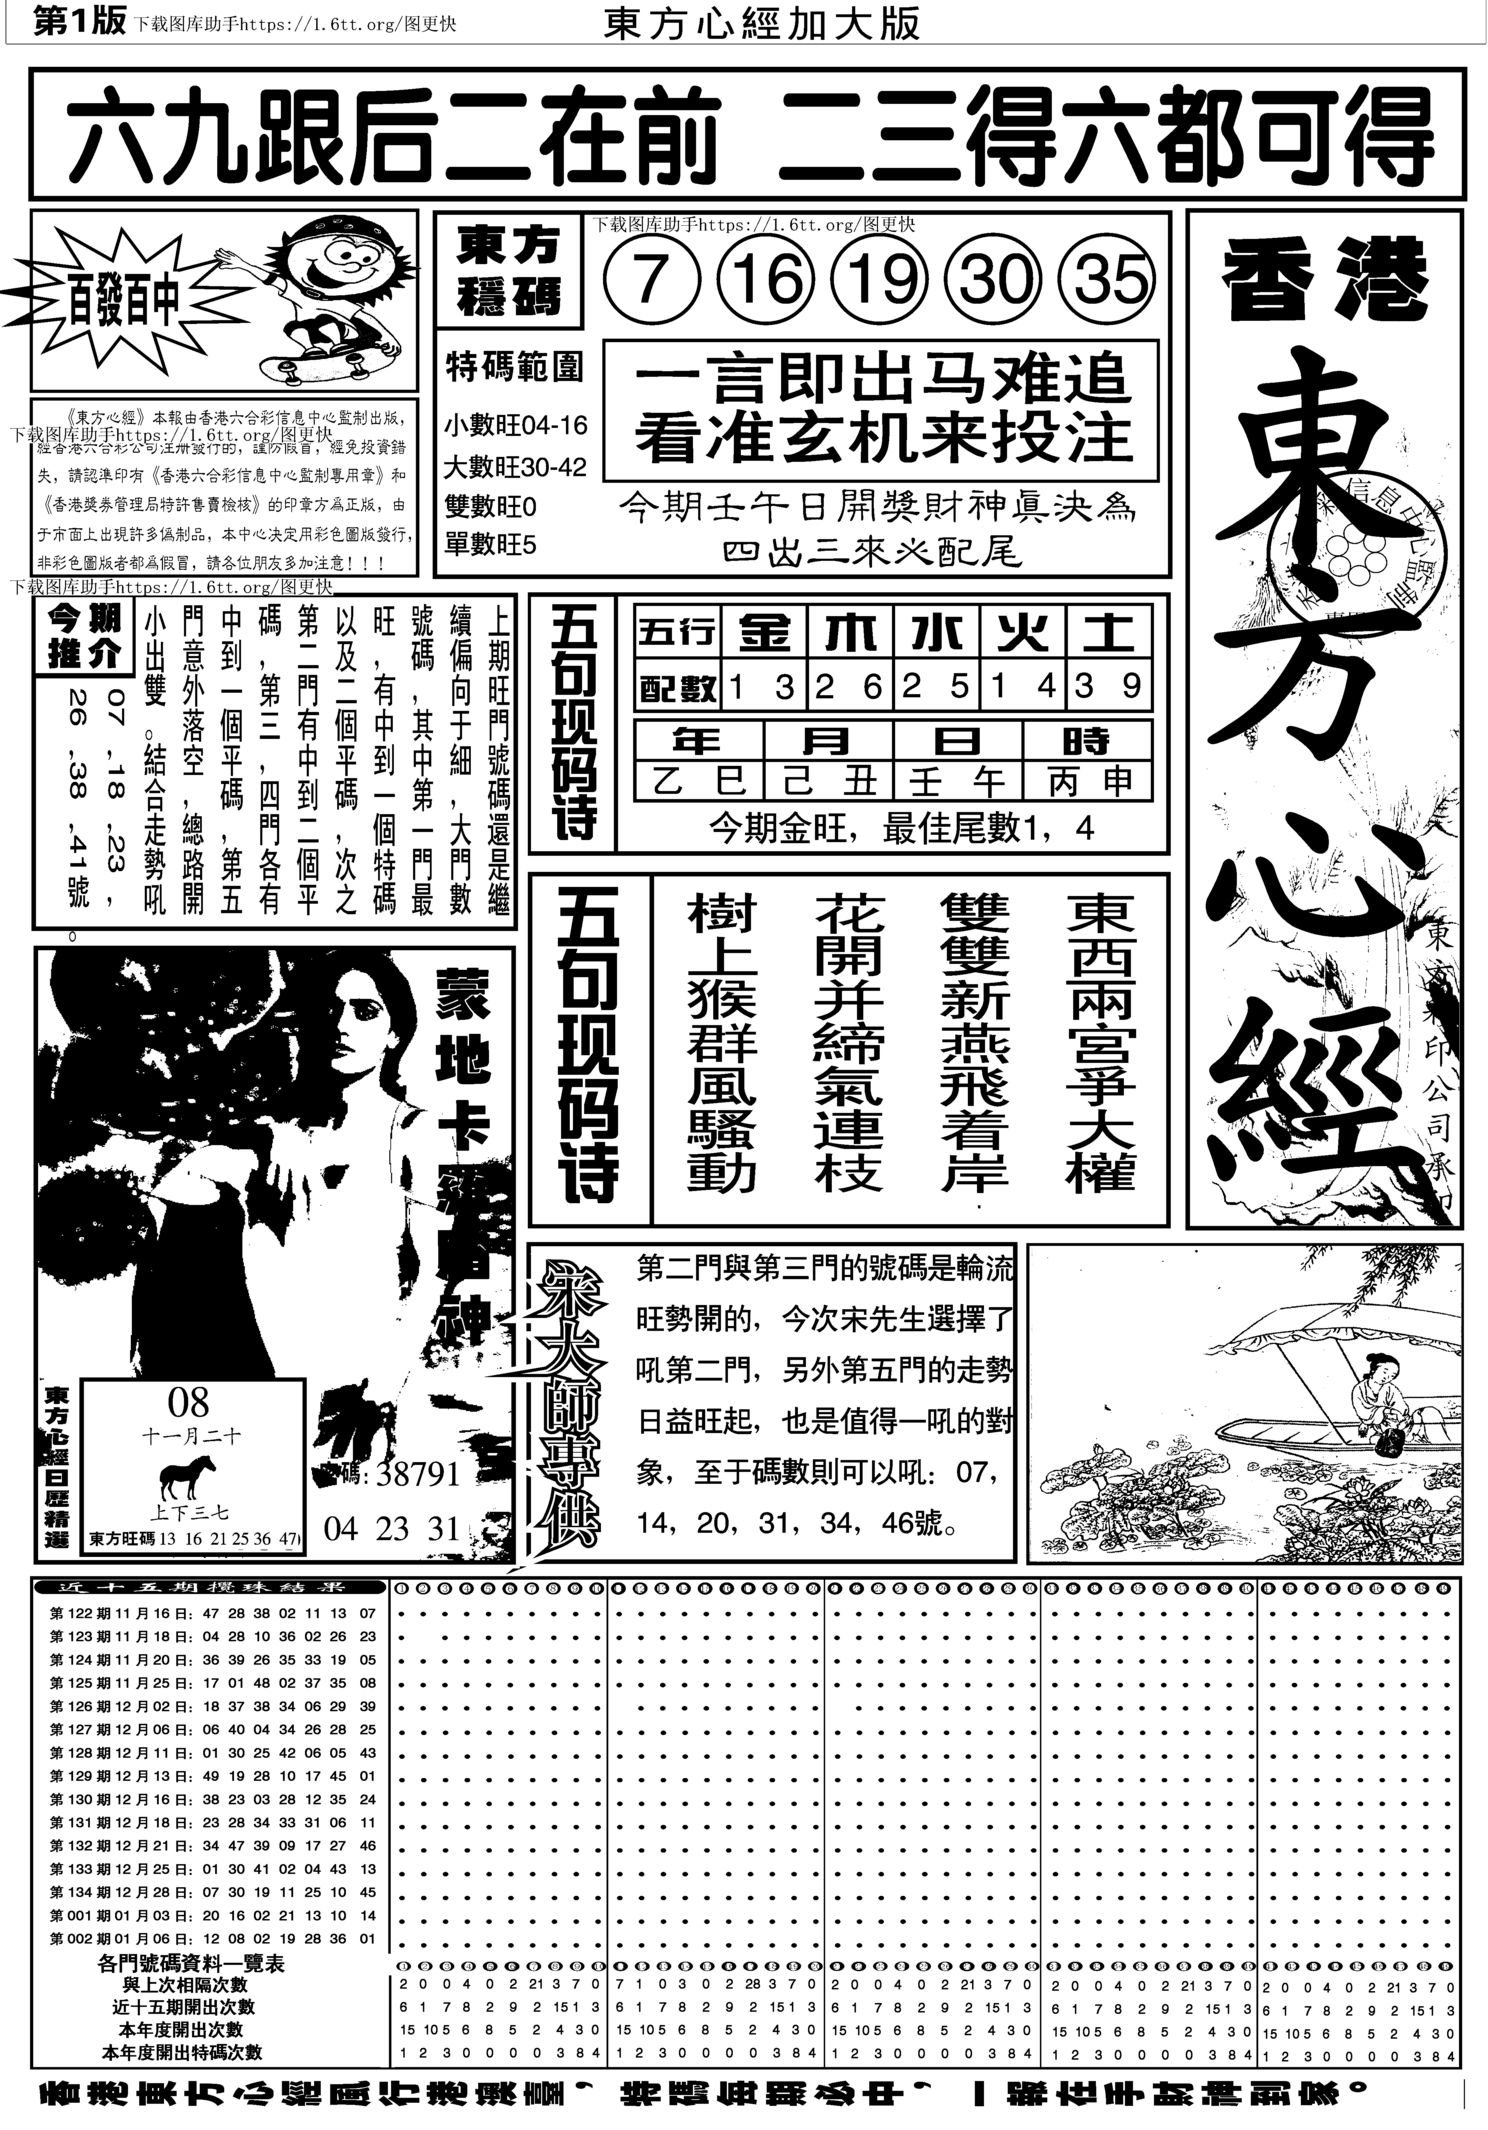 第1版 下载图库助手https://1.6tt.org/图更快
東方心經加大版
六九跟后二在前 二三得六都可得
百發百中
《東方心經》本報由香港六合彩信息中心監制出版，
下载图库助手https://1.6tt.org/图更快
經香港六合彩公司注册發行的，謹防假冒，經免投資錯
失，請認準印有《香港六合彩信息中心監制專用章》和
《香港獎券管理局特許售賣檢核》的印章方爲正版，由
于市面上出現許多僞制品，本中心决定用彩色圖版發行，
非彩色圖版者都爲假冒，請各位朋友多加注意！！！
下载图库助手https://1.6tt.org/图更快
東方
穩碼
下载图库助手https://1.6tt.org/图更快
7 16 19 30 35
特碼範圍
小數旺04-16
大數旺30-42
雙數旺0
單數旺5
一言即出马难追
看准玄机来投注
今期壬午日開獎財神眞決為
四出三來必配尾
香港
東方心經
信息中心監制
東方
印公司承印
今期
推介
上期旺門號碼還是繼
續偏向于細，大門數
號碼，其中第一門最
旺，有中到一個特碼
以及二個平碼，次之
第二門有中到二個平
碼，第三，四門各有
中到一個平碼，第五
門意外落空，總路開
小出雙。結合走勢吼
07,18,23,
26,38,41號
。
五句现码诗
五行 金 木 水 火 土
配數 1 3 2 6 2 5 1 4 3 9
年 月 日 時
乙巳 己丑 壬午 丙申
今期金旺，最佳尾數1，4
五句现码诗
東西兩宮爭大權
雙雙新燕飛着岸
花開并締氣連枝
樹上猴群風騷動
蒙地卡羅賭神
東方心經日歷精選
08
十一月二十
上下三七
東方旺碼 13 16 21 25 36 47
碼: 38791
04 23 31
宋大師專供
第二門與第三門的號碼是輪流
旺勢開的，今次宋先生選擇了
吼第二門，另外第五門的走勢
日益旺起，也是值得一吼的對
象，至于碼數則可以吼：07，
14，20，31，34，46號。
近十五期攪珠結果
第122期11月16日：47 28 38 02 11 13 07
第123期11月18日：04 28 10 36 02 26 23
第124期11月20日：36 39 26 35 33 19 05
第125期11月25日：17 01 48 02 37 35 08
第126期12月02日：18 37 38 34 06 29 39
第127期12月06日：06 40 04 34 26 28 25
第128期12月11日：01 30 25 42 06 05 43
第129期12月13日：49 19 28 10 17 45 01
第130期12月16日：38 23 03 28 12 35 24
第131期12月18日：23 28 34 33 31 06 11
第132期12月21日：34 47 39 09 17 27 46
第133期12月25日：01 30 41 02 04 43 13
第134期12月28日：07 30 19 11 25 10 45
第001期01月03日：20 16 02 21 13 10 14
第002期01月06日：12 08 02 19 28 36 01
各門號碼資料一覽表
與上次相隔次數 2 0 0 4 0 2 21 3 7 0 7 1 0 3 0 2 28 3 7 0 2 0 0 4 0 2 21 3 7 0 2 0 0 4 0 2 21 3 7 0 2 0 0 4 0 2 21 3 7 0
近十五期開出次數 6 1 7 8 2 9 2 15 1 3 6 1 7 8 2 9 2 15 1 3 6 1 7 8 2 9 2 15 1 3 6 1 7 8 2 9 2 15 1 3 6 1 7 8 2 9 2 15 1 3
本年度開出次數 15 10 5 6 8 5 2 4 3 0 15 10 5 6 8 5 2 4 3 0 15 10 5 6 8 5 2 4 3 0 15 10 5 6 8 5 2 4 3 0 15 10 5 6 8 5 2 4 3 0
本年度開出特碼次數 1 2 3 0 0 0 0 3 8 4 1 2 3 0 0 0 0 3 8 4 1 2 3 0 0 0 0 3 8 4 1 2 3 0 0 0 0 3 8 4 1 2 3 0 0 0 0 3 8 4
香港東方心經風行港澳臺，特碼每期必中，一報在手財神到家。